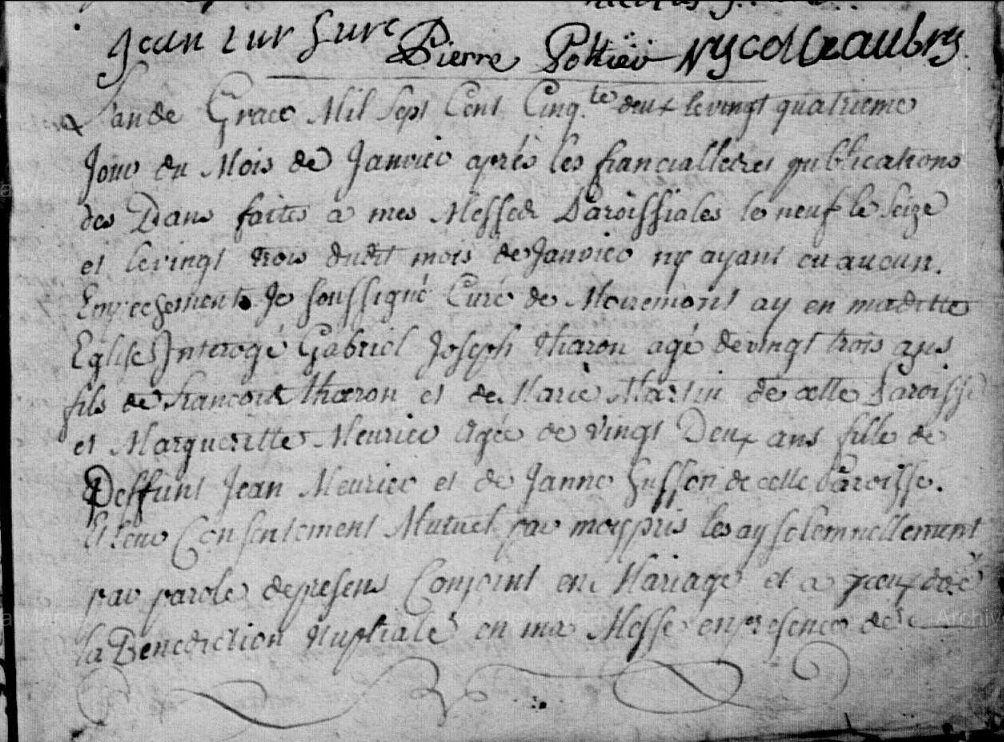 Jean
Pierre Pottier Nycol Beaubry
L'an de Grace Mil Sept Cent Cinq.te deux le vingt quatrieme
Jour du Mois de Janvier après les fiancialles publications
des Bans faites a mes Messes Paroissiales le neuf le Seize
et le vingt trois dudit mois de Janvier ny ayant eu aucun.
Empechement Je soussigné Curé de Moiremont ay en maditte
Eglise Interogé Gabriel Joseph tharon agé de vingt trois ans
fils de francois tharon et de Marie Martin de cette Paroisse
et Margueritte Meurier Agée de vingt Deux ans fille de
Deffunt Jean Meurier et de Janne Husson de cette Paroisse.
Et leur Consentement Mutuel par moy pris les ay solemnellement
par parole de presens Conjoint en Mariage et a
la Benediction Nuptiale en ma Messe en presence de